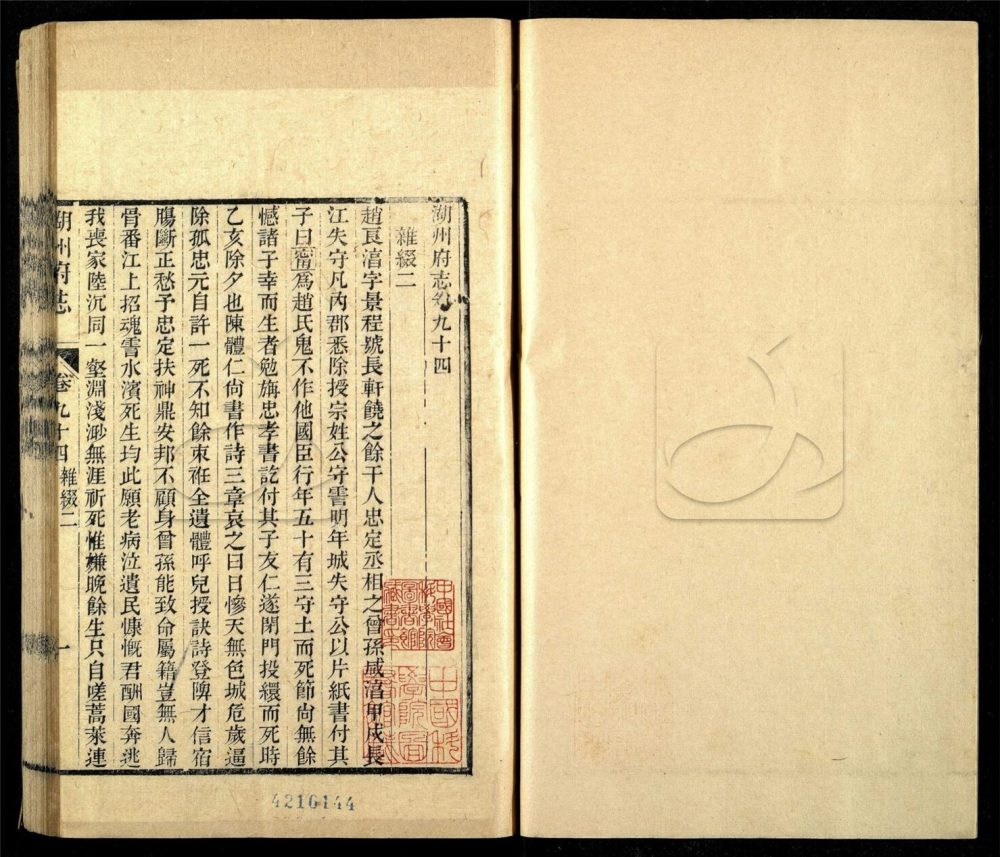 湖州府志卷九十四
雜綴二
趙良淯字景程號長軒饒之餘干人忠定丞相之曾孫咸淯甲戌長
江失守凡內郡悉除授宗姓公守霅明年城失守公以片紙書付其
子曰甯為趙氏鬼不作他國臣行年五十有三守土而死節尚無餘
憾諸子幸而生者勉旃忠孝書訖付其子友仁遂閉門投繯而死時
乙亥除夕也陳體仁尚書作詩三章哀之曰日慘天無色城危歲逼
除孤忠元自許一死不知餘束袵全遺體呼兒授訣詩登陴才信宿
腸斷正愁予忠定扶神鼎安邦不顧身曾孫能致命屬籍豈無人歸
骨番江上招魂霅水濱死生均此願老病泣遺民慷慨君酬國奔逃
我喪家陸沉同一壑淵淺渺無涯祈死惟嫌晚餘生只自嗟蒿萊連
湖州府志
卷九十四
雜綴二
一
中國社會科學院圖書館藏書
中國科學院圖書館藏
4216144